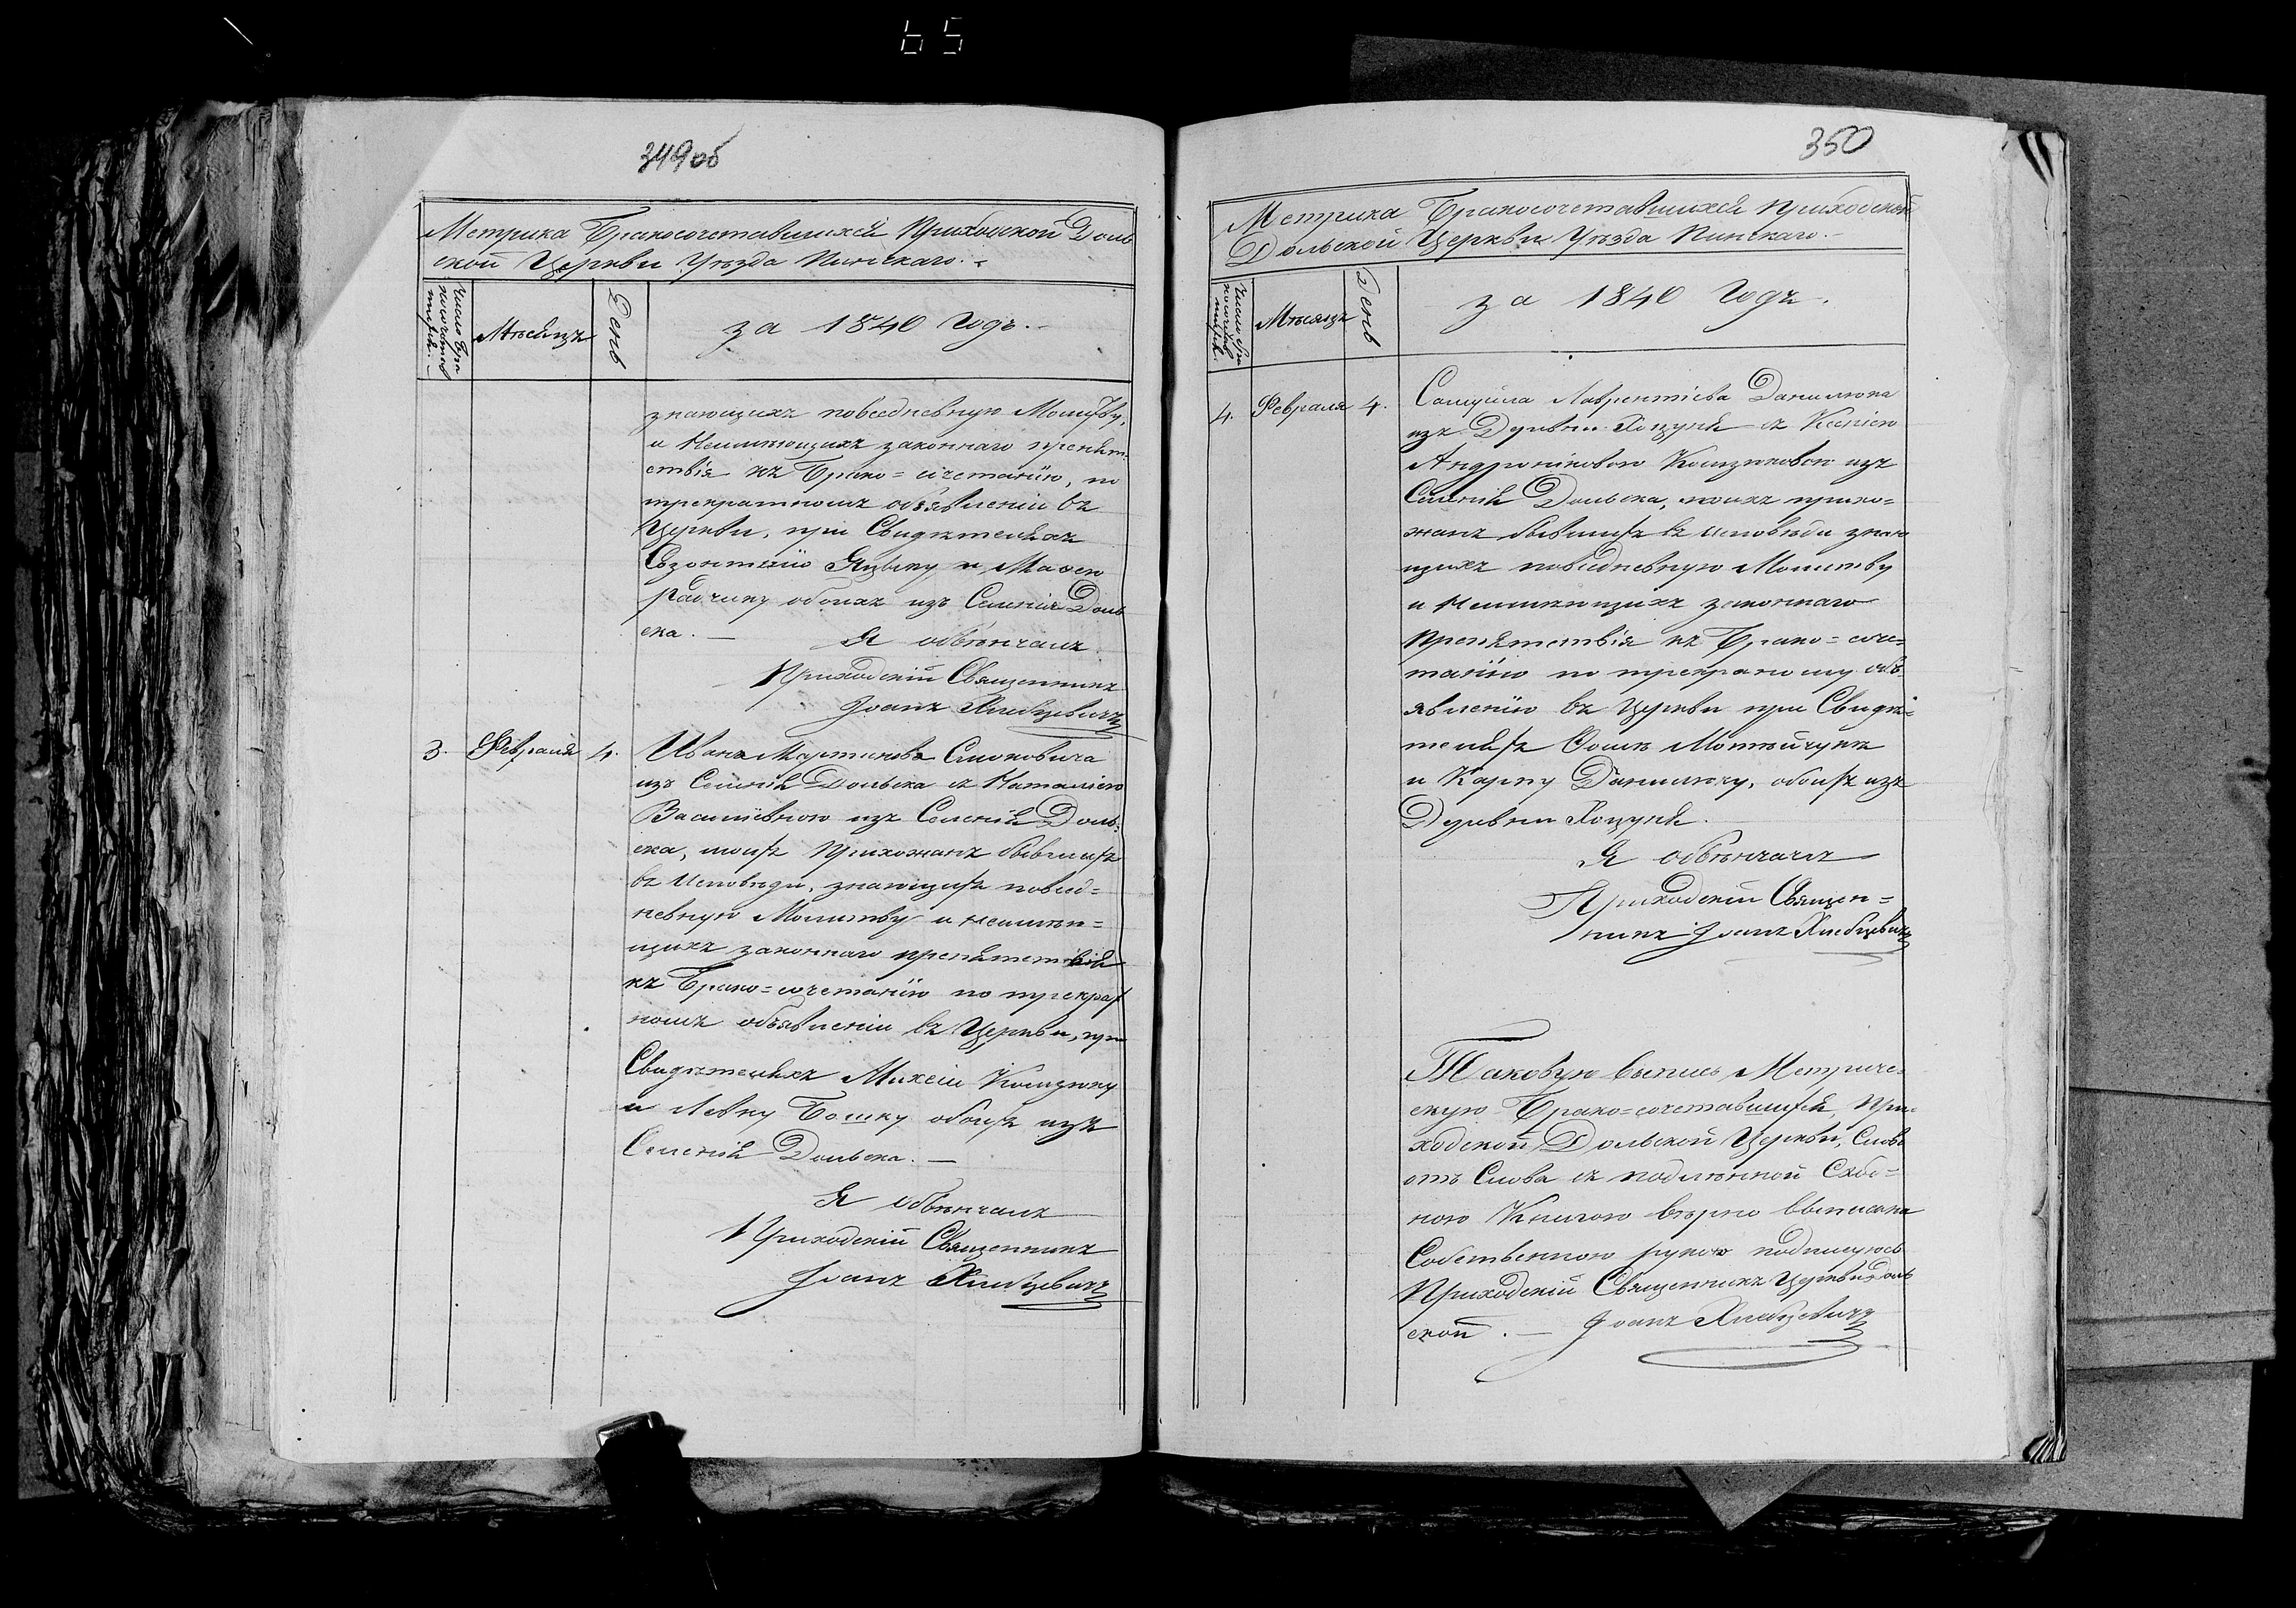 65
349об
Метрика Бракосочетавшихся Приходской Доль
ской Церкви Уѣзда Пинскаго. -
Число Бра
косочетав
шихся. -
Мѣсяцъ
День
за 1840 Годъ. -
знающихъ повседневную Молитву,
и Неимѣющихъ законнаго препят-
ствія къ Брако=сочетанію, по
трекратномъ объявленіи въ
Церкви, при Свидѣтеляхъ
обоихъ изъ Селенія Доль
ска. —
Я обвѣнчалъ
Приходскій Священникъ
Іоанъ Хлебцевичъ
3. Февраля 4. Ивана Мартинова Симоновича
изъ Селенія Дольска съ Наталіею
Василіевною изъ Селенія Доль-
ска, моихъ Прихожанъ бывшихъ
въ Исповѣди, знающихъ повсед=
невную Молитву и неимѣю=
щихъ законнаго препятствія
къ Брако=сочетанію по трекрат
номъ объявленіи въ Церкви, при
Свидѣтеляхъ
и Левку Бошку обоихъ изъ
Селенія Дольска. —
Я обвѣнчалъ
Приходскій Священникъ
Іоанъ Хлебцевичъ
350
Метрика Бракосочетавшихся Приходской
Дольской Церкви Уѣзда Пинскаго. -
Число Бра
косочетав
шихся.
Мѣсяцъ
День
за 1840 Годъ.
4. Февраля 4. Самуила Лаврентіева Данилюка
изъ Деревни Хоцуня съ Ксеніею
Андрониковою из
Селенія Дольска, моихъ прихо=
жанъ бывшихъ въ исповѣди знаю
щихъ повседневную Молитву
и Неимѣющихъ законнаго
препятствія къ Брако=соче=
танію по трекратному объ
явленію въ Церкви при Свидѣ=
теляхъ Ѳомѣ
и Карпу Данилюку, обоихъ изъ
Деревни Хоцуня.
Я обвѣнчалъ
Приходскій Священ=
никъ Іоанъ Хлебцевичъ
Таковую выпись Метриче-
скую Брако=сочетавшихся, При-
ходской Дольской Церкви, Слово
отъ Слова съ подлѣнной
ною Книгою вѣрно выписана
Собственною рукою подписуюсь
Приходскій Священникъ Церкви Доль
ской. — Іоанъ Хлебцевичъ